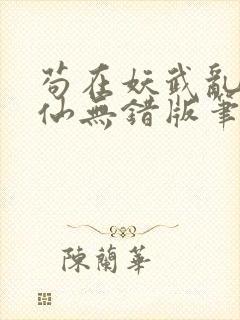 苟在妖武亂
仙無錯版筆
陳蘭華